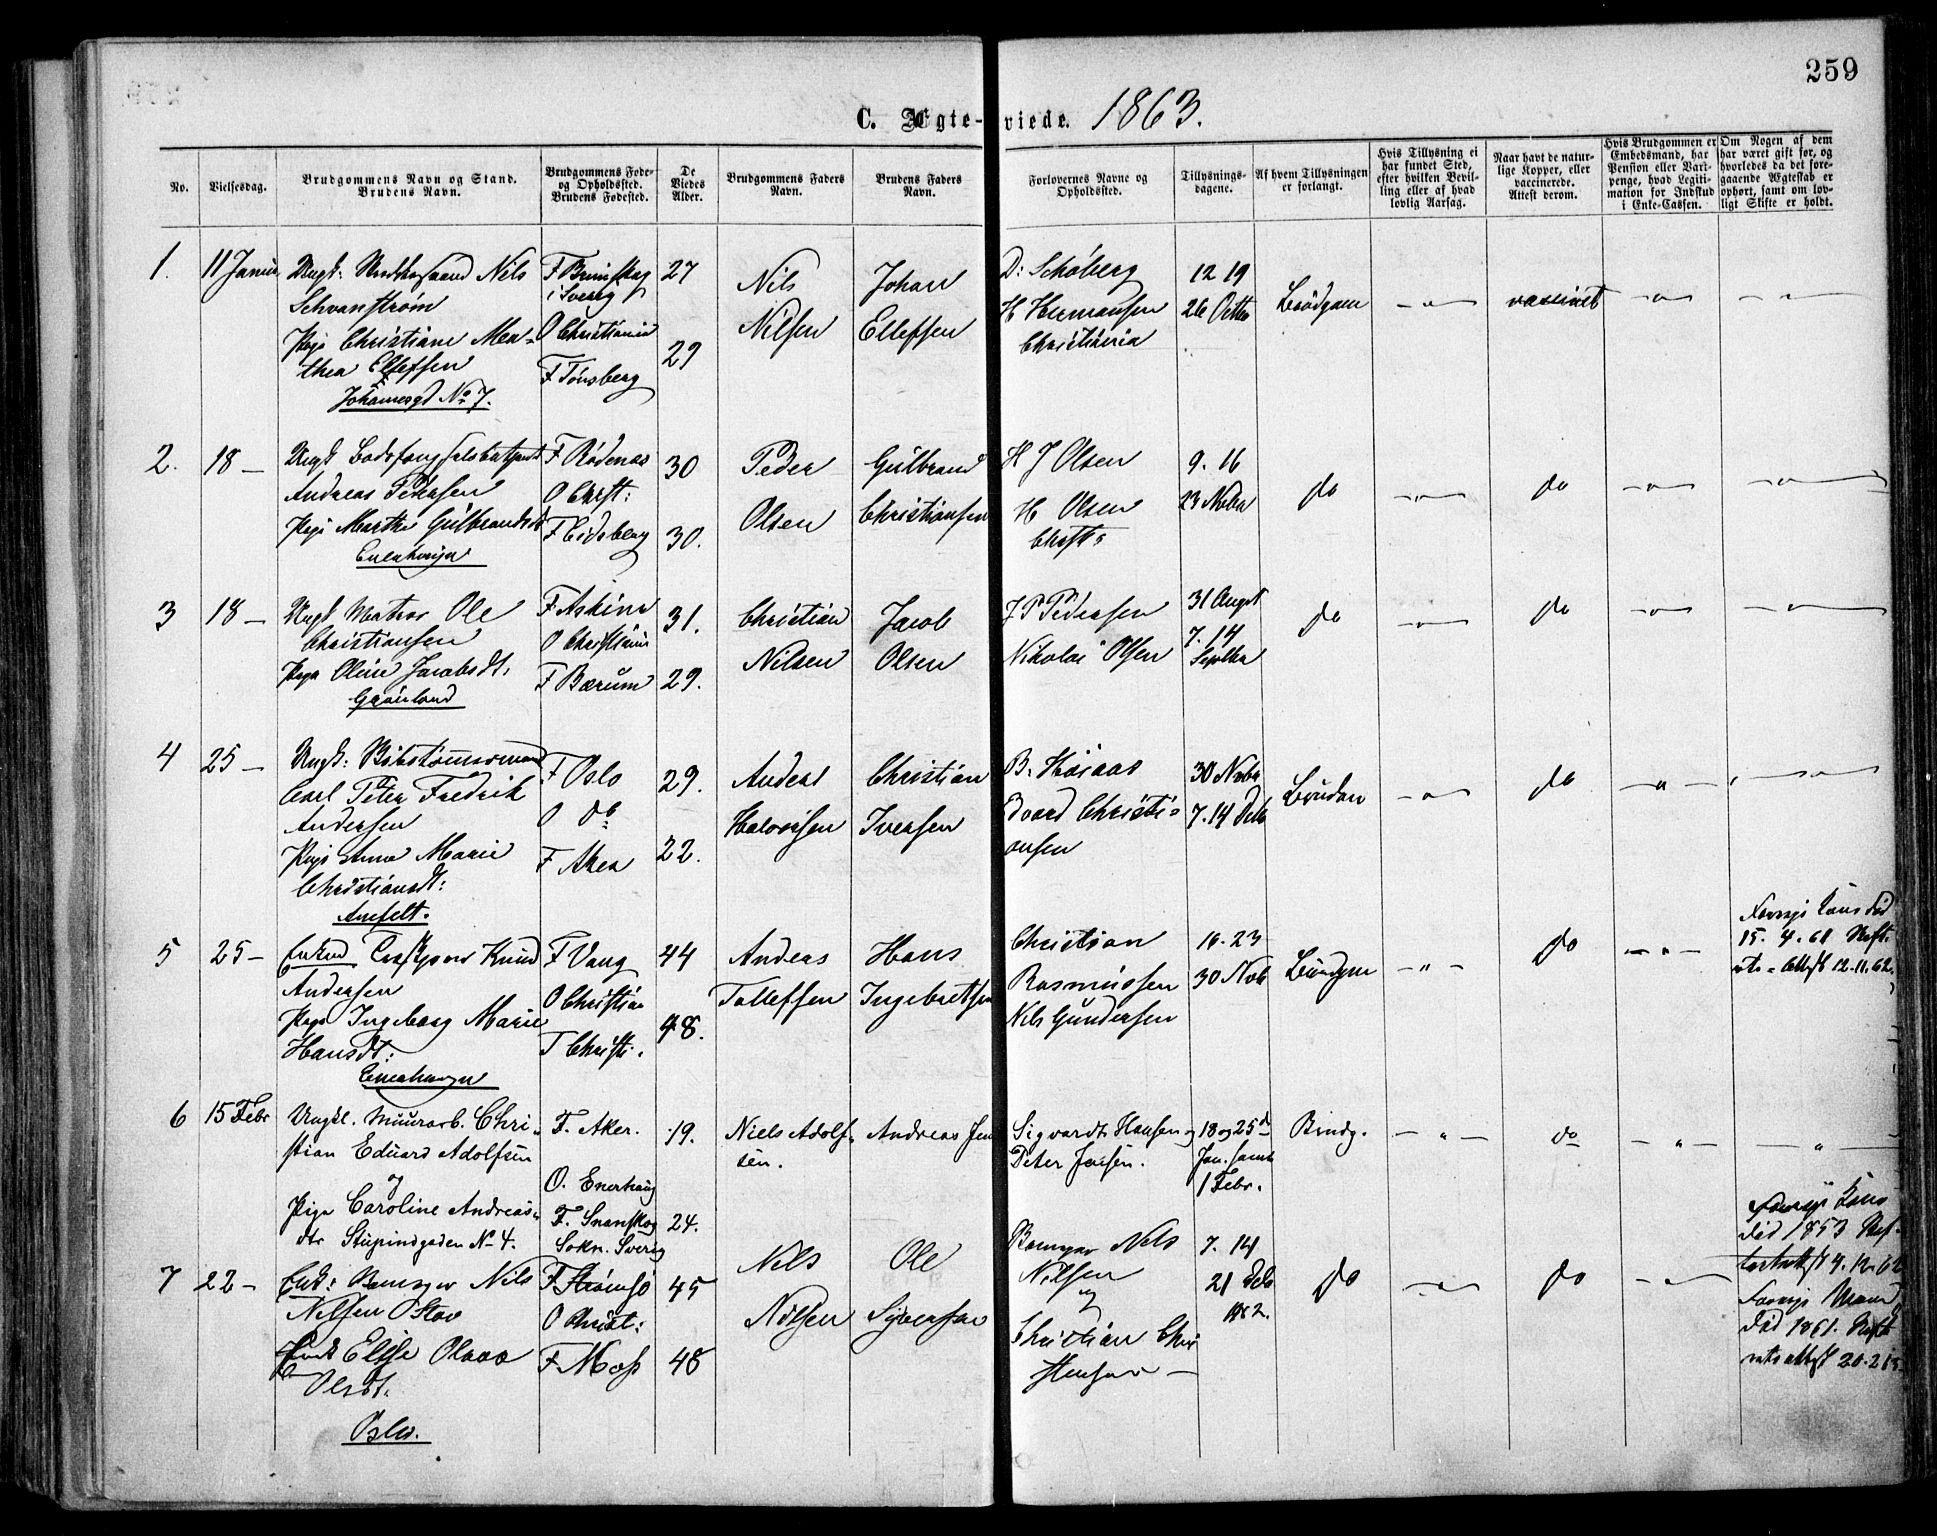 259
C. Ægte-viede. 1863.
No.
Vielsesdag.
Brudgommens Navn og Stand.
Brudens Navn.
Brudgommens Føde-
og Opholdssted.
Brudens Fødested.
De
Viedes
Alder.
Brudgommens Faders
Navn.
Brudens Faders
Navn.
Forlovernes Navne og
Opholdssted.
Tillysnings-
dagene.
Af hvem Tillysningen
er forlangt.
Hvis Tillysning ei
har fundet Sted,
efter hvilken Bevil-
ling eller af hvad
lovlig Aarsag.
Naar havt de natur-
lige Kopper, eller
vaccinerede.
Attest derom.
Hvis Brudgommen er
Embedsmand, har
Pension eller Vari-
penge, hvad Legiti-
mation for Indskud
i Enke-Cassen.
Om Nogen af dem
har været gift før, og
hvorledes da det fore-
gaaende Ægteskab er
ophørt, samt om lov-
ligt Skifte er holdt.
1. 11 Januar
Ungk: Nils
Schvanstrøm
Pige Christiane Mea-
thea Ellefsen
Johannesgd No 7.
F Brunskog
i Sverig
O Christiania
F Tønsberg
27
29
Nils
Nilsen
Johan
Ellefsen
D: Schøberg
H Hermansen
Christiania
12 19
26 Octbr
Brudgom
— " —
vaccineret
— " —
— " —
2. 18 —
Ungk Bodsfængselsbetjent
Andreas Pedersen
Pige Marthe Gulbrandsdt
Enerhaugen
F Rødenes
O Christ:
F Eidsberg
30
30.
Peder
Olsen
Gulbrand
Christiansen
H J Olsen
H Olsen
Christ:
9. 16
23 Novbr
do
— " —
do
— " —
— " —
3 18 —
Ungk Matros Ole
Christiansen
Pige Oline Jacobsdt.
Grønland
F Askim
O Christiania
F Bærum
31.
29.
Christian
Nilsen
Jacob
Olsen
J P Pedersen
Nikolai Olsen
31 August
7. 14
Septbr
do
— " —
do
— " —
— " —
4 25 —
Ungk:
Carl Peter Fredrik
Andersen
Pige Anne Marie
Christiansdt:
Anefelt.
F Oslo
O do
F Aker
29.
22.
Anders
Halvorsen
Christian
Iversen
B. Høiaas
Edvard Christi-
ansen
30 Novbr
7. 14 Decb
Bruden
— " —
do
— " —
— " —
5 25 —
Enkem Knud
Andersen
Pige Ingeborg Marie
Hansdt:
Enerhaugen
F Vang
O Christian
F Christi.
44
48.
Anders
Tollefsen
Hans
Ingebretsen
Christian
Rasmussen
Nils Gundersen
16. 23
30 Nob
Brudgom
— " —
do
— " —
Forrige Kone død
15. 4. 61 Skift.
rets-Attest 12.11.62.
6 15 Febr
Ungkl. Muurarb. Chri-
stian Eduard Adolfsen
og
Pige Caroline Andreas-
dtr Stupindgaden No 4.
F. Aker.
O. Enerhaug
F. Snanskog
Sokn. Sverig
19.
24.
Niels Adolf-
sen.
Andreas Jen
Sigvardt Hansen og
Peter Jensen.
18 og 25de
Jan. samt
1 Febr.
Brudg.
— " —
do
— " —
— " —
7 22 —
Enk: Nils
Nilsen Stov
Enk Elise Olava
Olsdt.
Oslo.
F Strømsø
O Christ:
F Moss
45
48
Nils
Nilsen
Ole
Syversen
Nils
Nilsen
og
Christian Chri
stensen —
7. 14
21 Decb
1862.
do
— " —
do
— " —
Forrige Kone
død 1853 Skif-
terattest 4.12.62
Forrige Mand
død 1861. Skift
retsattest 20.2.63